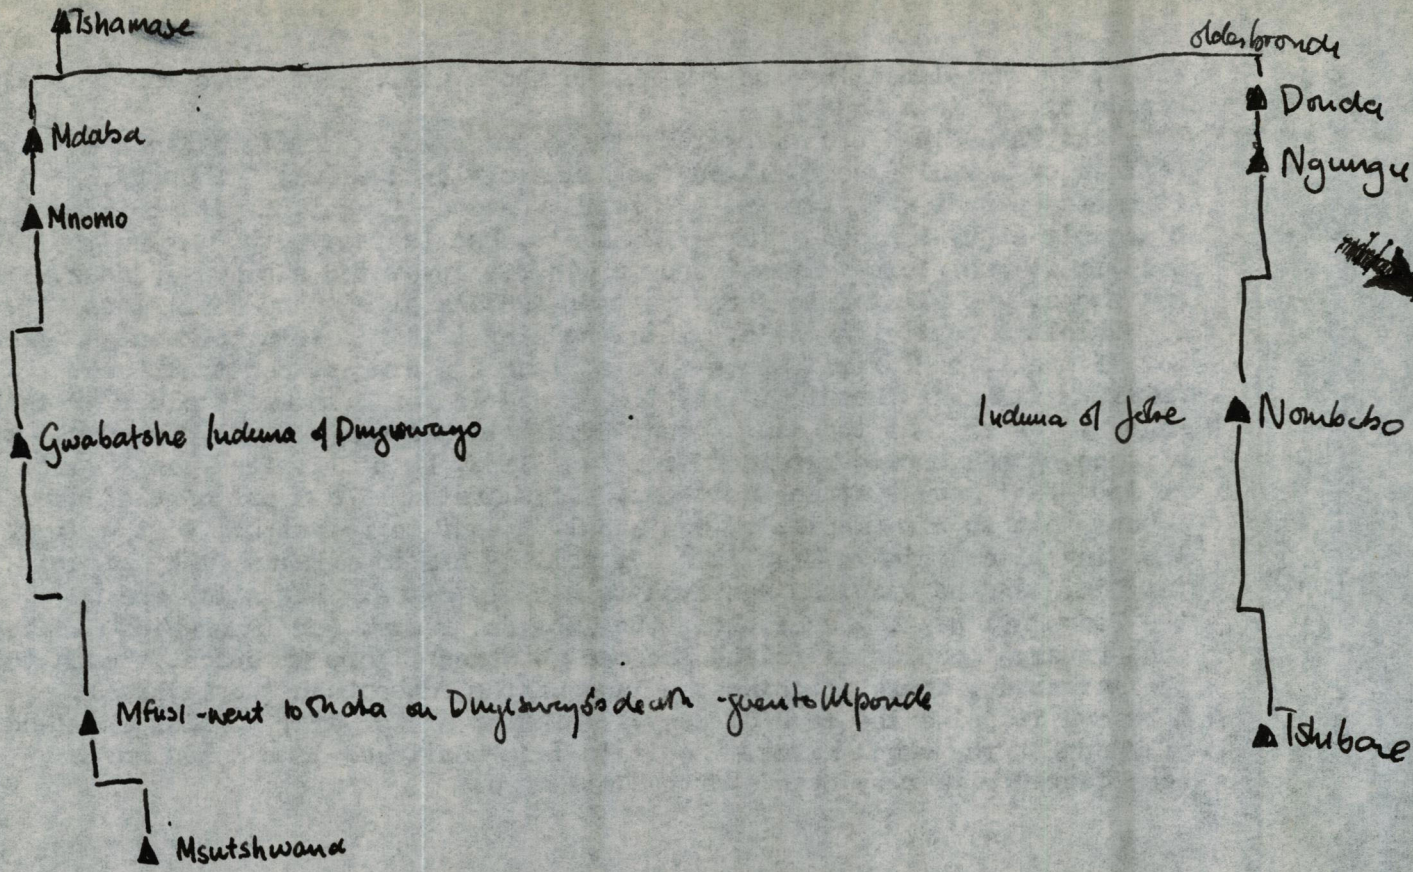 Tshamase
Mdaba
Mnomo
Gwabatshe Induna of Dingiswayo
Mfusi - went to Shaka on Dingiswayo's death - given to Mpande
Msutshwana
Donda
Ngungu
Induna of Jobe
Nombobo